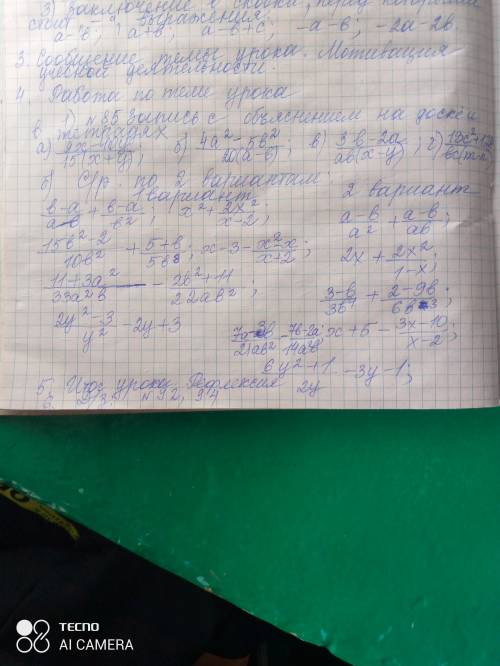 3) Заключение в скобки, перед которыми
стоит "-", выражения:
a-b; a+b; a-b+c; -a-b; -2a-2b.
3. Сообщение темы урока. Мотивация
учебной деятельности.
4. Работа по теме урока
1) №85 запись с объяснением на доске и
в тетрадях
а) (9x-10y)/(15(x+y)); б) (4a²-5b²)/(20(a-b)); в) (3b-2a)/(ab(x-y)); г)
б) С/р. по 2 вариантам:
1 вариант 2 вариант
(b-a)/(ab) + (b-a)/b²; x² + 2x²/(x-2); (a-b)/a² + (a-b)/(ab)
(15b²-2)/(10b²) + (5+b)/(5b); x-3-(x²-x)/(x+2); 2x + 2x²/(1-x);
(11+3a²)/(33a²b) - (2b²+11)/(22ab²); (3-b)/(3b²) + (2-9b)/(6b³);
(2y²-3)/y² - 2y+3 (7a-3b)/(21ab²) - (7b-2a)/(14a²b); x+5-(3x-10)/(x-2);
(6y²+1)/(2y) - 3y-1;
5. Итог урока. Рефлексия
6. №92, 94
TECNO
AI CAMERA